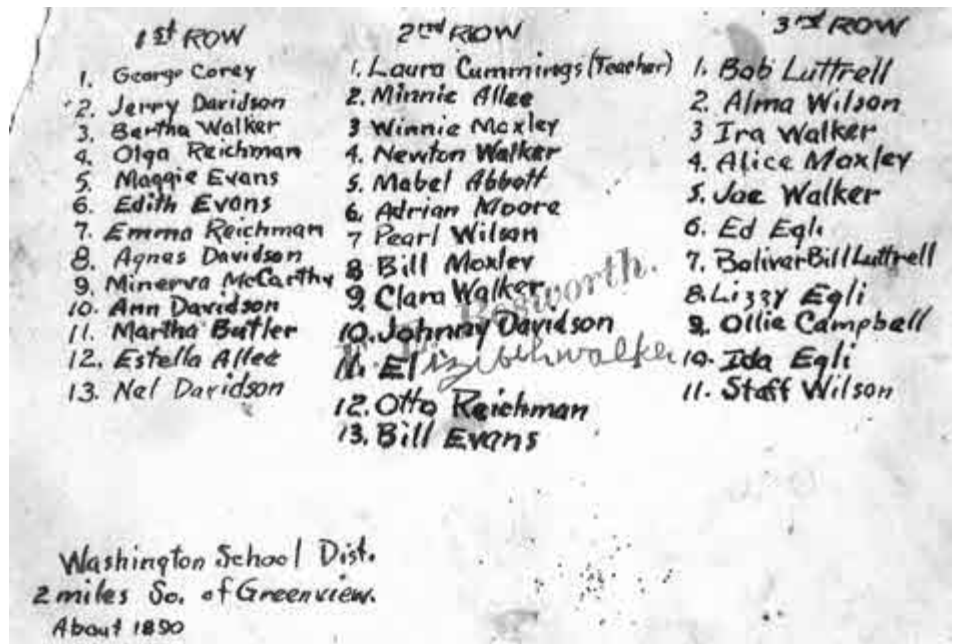 1st ROW
1. George Corey
2. Jerry Davidson
3. Bertha Walker
4. Olga Reichman
5. Maggie Evans
6. Edith Evans
7. Emma Reichman
8. Agnes Davidson
9. Minerva McCarthy
10. Ann Davidson
11. Martha Butler
12. Estella Allee
13. Nel Davidson
2nd ROW
1. Laura Cummings (Teacher)
2. Minnie Allee
3 Winnie Moxley
4. Newton Walker
5. Mabel Abbott
6. Adrian Moore
7 Pearl Wilson
8 Bill Moxley
9. Clara Walker
Bosworth.
10. Johnny Davidson
11. Elizibeh walker
12. Otto Reichman
13. Bill Evans
3rd ROW
1. Bob Luttrell
2. Alma Wilson
3 Ira Walker
4. Alice Moxley
5. Joe Walker
6. Ed Egli
7. Bolivar Bill Luttrell
8. Lizzy Egli
9. Ollie Campbell
10. Ida Egli
11. Staff Wilson
Washington School Dist.
2 miles So. of Greenview.
About 1890